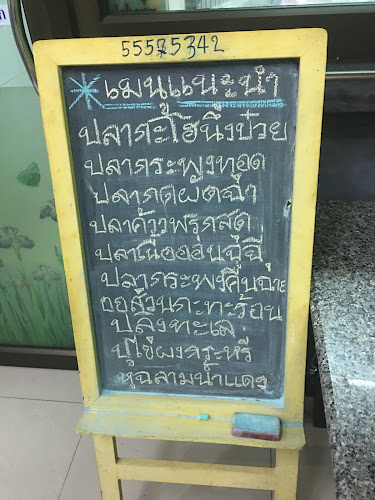 55585342
*เมนูแนะนำ
ปลากะโฮนึ่งบ๊วย
ปลากระพงทอด
ปลากดผัดฉ่า
ปลาค้าวพริกสด
ปลาเนื้ออ่อนฉู่ฉี่
ปลากระพงคืนฉ่าย
ออส่วนกะทะร้อน
ปลิงทะเล
ปูไข่ผงกะหรี่
หูฉลามน้ำแดง